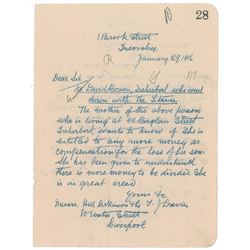 28
1 Brook Street
Treorchy,
January 29, 1916
Dear Sir,
Re David Bowen, Treherbert who went
down with The Titanic
The mother of the above person
who is living at 42 Baglan Street
Treherbert, wants to know if she is
entitled to any more money as
compensation for the loss of his son.
She has been given to understand
there is more money to be divided. She
is in great need
Yours &c
Messrs. Hill Dickinson & Co T. J. Davies
10 Water Street
Liverpool